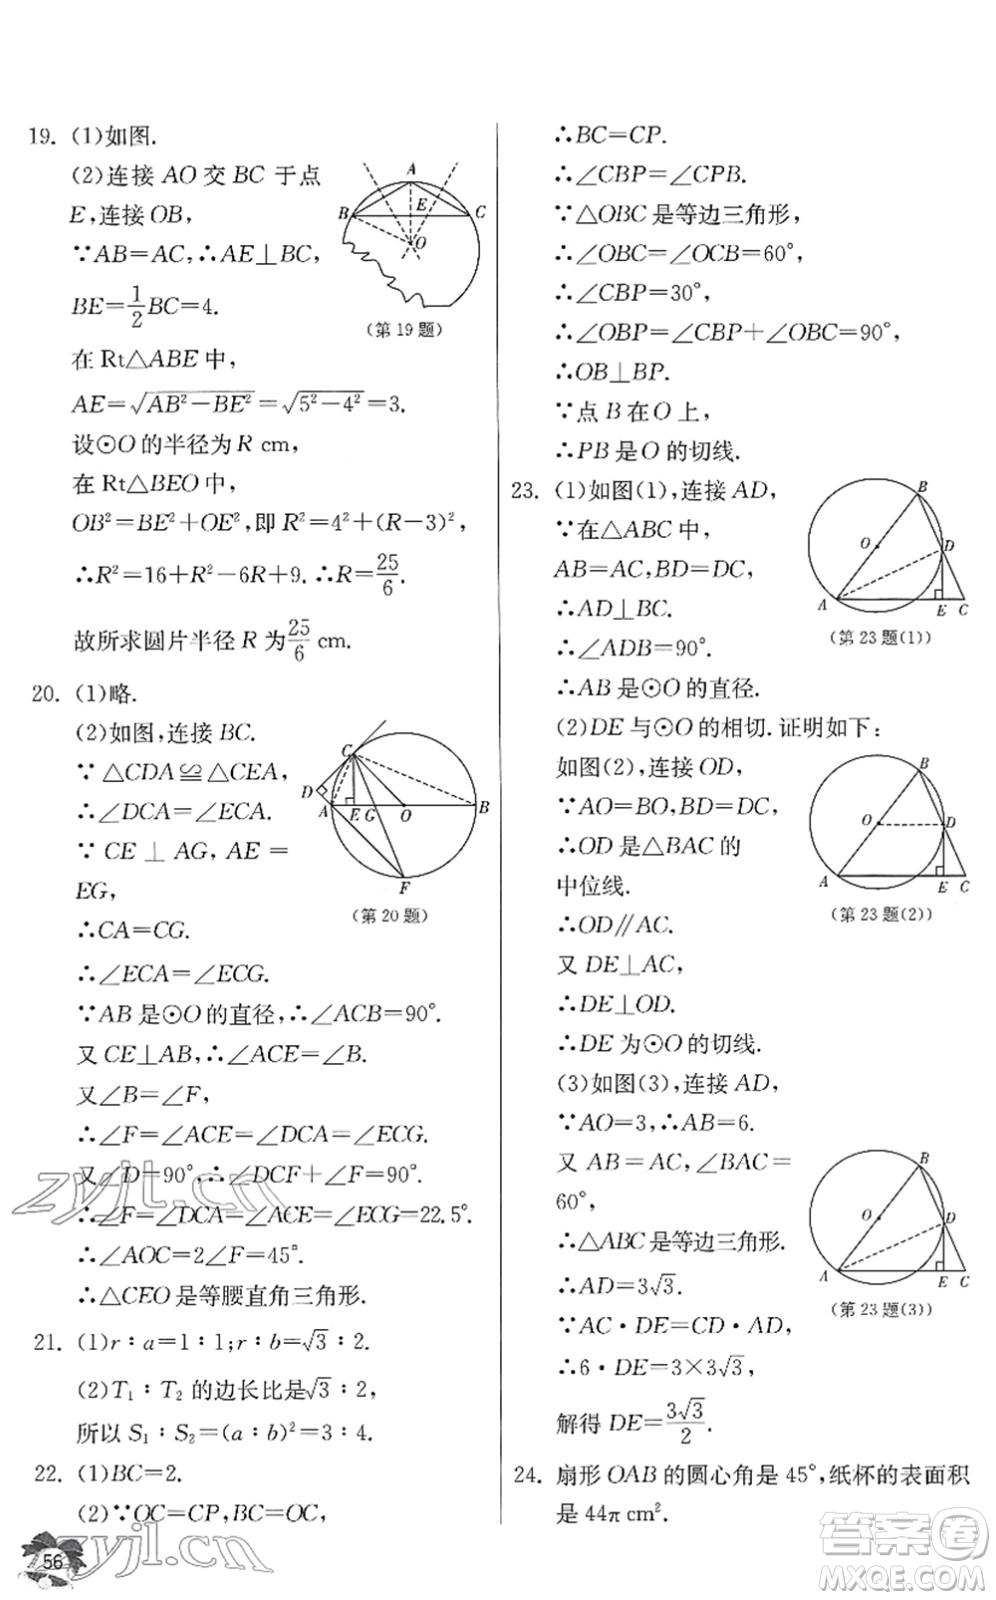 19. (1)如图.
(2)连接 AO 交 BC 于点
E,连接 OB,
∵AB=AC,∴AE⊥BC,
BE=1/2BC=4.
(第 19 题)
在 Rt△ABE 中,
AE=√(AB²-BE²)=√(5²-4²)=3.
设⊙O 的半径为 R cm,
在 Rt△BEO 中,
OB²=BE²+OE²,即 R²=4²+(R-3)²,
∴R²=16+R²-6R+9.∴R=25/6.
故所求圆片半径 R 为25/6 cm.
20. (1)略.
(2)如图,连接 BC.
∵ △CDA≌△CEA,
∴∠DCA=∠ECA.
∵ CE ⊥ AG, AE =
EG,
(第 20 题)
∴CA=CG.
∴∠ECA=∠ECG.
∵AB 是⊙O 的直径,∴∠ACB=90°.
又 CE⊥AB,∴∠ACE=∠B.
又∠B=∠F,
∴∠F=∠ACE=∠DCA=∠ECG.
又∠D=90°,∴∠DCF+∠F=90°.
∴∠F=∠DCA=∠ACE=∠ECG=22.5°.
∴∠AOC=2∠F=45°.
∴△CEO 是等腰直角三角形.
21. (1)r∶a=1∶1;r∶b=√3∶2.
(2)T₁∶T₂ 的边长比是√3∶2,
所以 S₁∶S₂=(a∶b)²=3∶4.
22. (1)BC=2.
(2)∵OC=CP,BC=OC,
56
∴BC=CP.
∴∠CBP=∠CPB.
∵△OBC 是等边三角形,
∴∠OBC=∠OCB=60°,
∴∠CBP=30°,
∴∠OBP=∠CBP+∠OBC=90°,
∴OB⊥BP.
∵点 B 在 O 上,
∴PB 是 O 的切线.
23. (1)如图(1),连接 AD,
∵在△ABC 中,
AB=AC,BD=DC,
∴AD⊥BC.
∴∠ADB=90°.
(第 23 题(1))
∴AB 是⊙O 的直径.
(2)DE 与⊙O 的相切.证明如下:
如图(2),连接 OD,
∵AO=BO,BD=DC,
∴OD 是△BAC 的
中位线.
(第 23 题(2))
∴OD∥AC.
又 DE⊥AC,
∴DE⊥OD.
∴DE 为⊙O 的切线.
(3)如图(3),连接 AD,
∵AO=3,∴AB=6.
又 AB=AC,∠BAC=
60°,
∴△ABC 是等边三角形.
∴AD=3√3.
(第 23 题(3))
∵AC·DE=CD·AD,
∴6·DE=3×3√3.
解得 DE=3√3/2.
24. 扇形 OAB 的圆心角是 45°,纸杯的表面积
是 44π cm².
zyjl.cn
zyjl.cn
答案圈
MXQE.COM